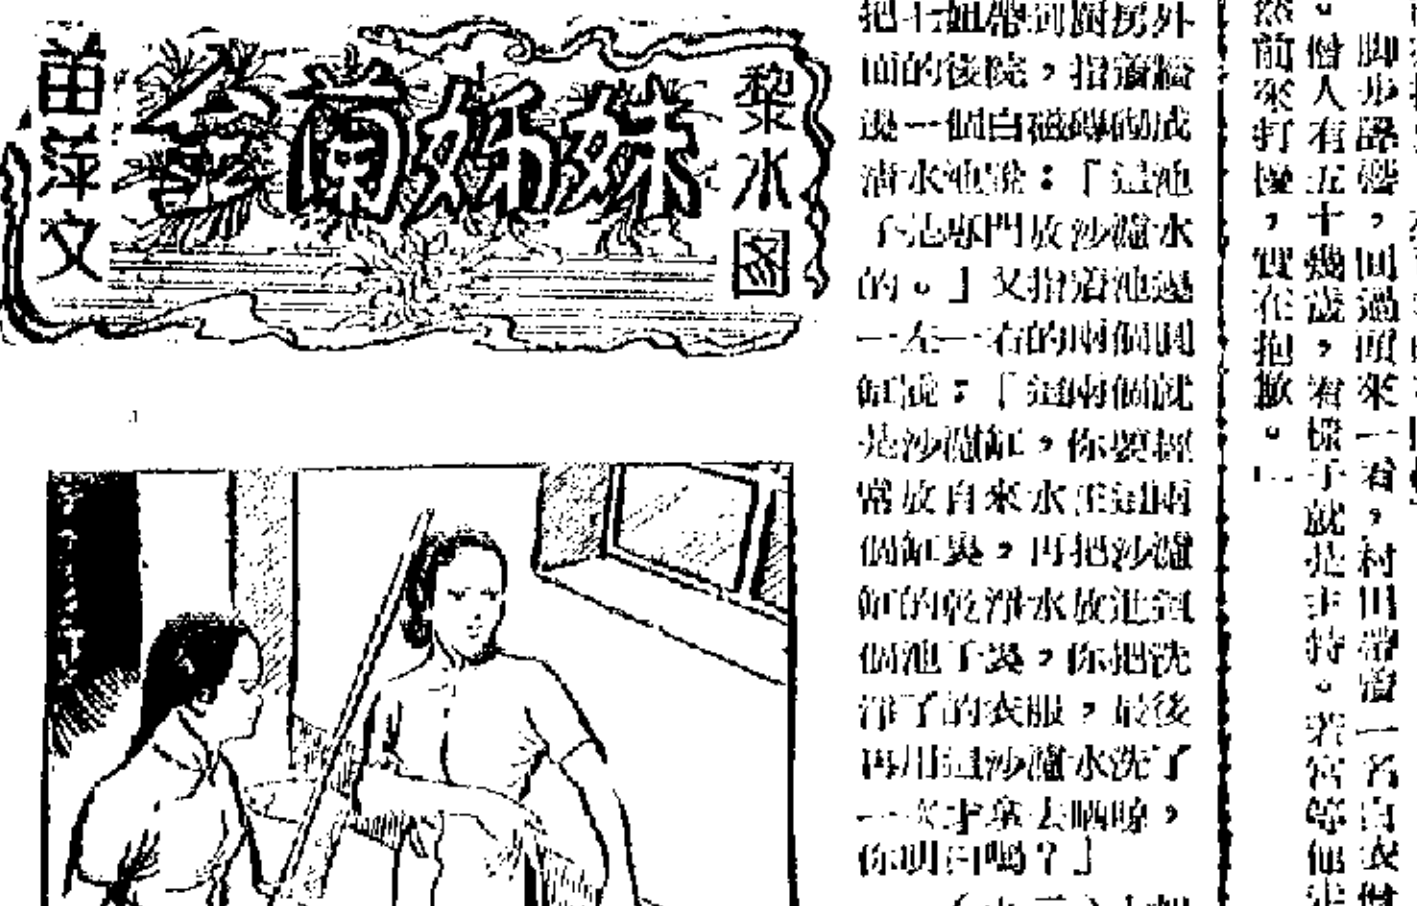 金蘭姊妹
苗萍文
黎水图
把七姐帶到廚房外
面的後院，指着牆
邊一個白磁磚砌成
清水池說：「這池
子是專門放沙濾水
的。」又指着池邊
一左一右的兩個圓
缸說：「這兩個就
是沙濾缸，你要經
常放自來水在這兩
個缸裏，再把沙濾
缸的乾淨水放進這
個池子裏，你把洗
淨了的衣服，最後
再用這沙濾水洗了
一次才拿去晒晾，
你明白嗎？」
脚步聲，回過頭來一看，村田帶着一名白衣僧
僧人有五十幾歲，看樣子就是主持。若宮等他走
然前來打擾，實在抱歉。